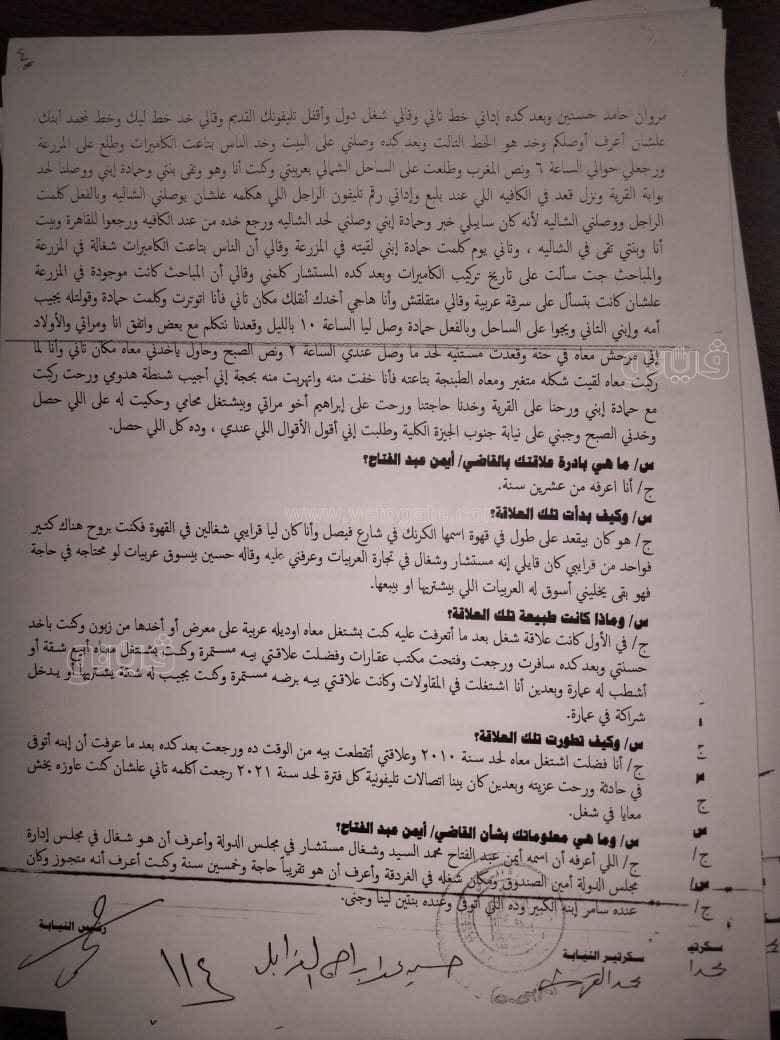 ٤
مروان حامد حسنين وبعد كده إداني خط تاني وقالي شغل دول وأقفل تليفونك القديم وقالي خد خط ليك وخط لمحمد أبنك
علشان أعرف أوصلكم وخد هو الخط التالت وبعد كده وصلني على البيت وخد الناس بتاعت الكاميرات وطلع على المزرعة
ورجعلي حوالي الساعة ٦ ونص المغرب وطلعت على الساحل الشمالي بعربيتي وكنت أنا وهو وتقى بنتي وحمادة إبني ووصلنا لحد
بوابة القرية ونزل قعد في الكافيه اللي عند بليع وإداني رقم تليفون الراجل اللي هكلمه علشان يوصلني الشاليه وبالفعل كلمت
الراجل ووصلني الشاليه لأنه كان سايبلي خبر وحمادة إبني وصلني لحد الشاليه ورجع خده من عند الكافيه ورجعوا للقاهرة وبيت
أنا وبنتي تقى في الشاليه ، وتاني يوم كلمت حمادة إبني لقيته في المزرعة وقالي أن الناس بتاعت الكاميرات شغالة في المزرعة
والمباحث جت سألت على تاريخ تركيب الكاميرات وبعد كده المستشار كلمني وقالي أن المباحث كانت موجودة في المزرعة
علشان كانت بتسأل على سرقة عربية وقالي متقلقش وأنا هاجي أخدك أنقلك مكان تاني فأنا اتوترت وكلمت حمادة وقولتله يجيب
أمه وإبني التاني ويجوا على الساحل وبالفعل حمادة وصل ليا الساعة ١٠ بالليل وقعدنا نتكلم مع بعض واتفق انا ومراتي والأولاد
إني مرحش معاه في حته وقعدت مستنيه لحد ما وصل عندي الساعة ٢ ونص الصبح وحاول ياخدني معاه مكان تاني وأنا لما
ركبت معاه لقيت شكله متغير ومعاه الطبنجة بتاعته فأنا خفت منه واتهربت منه بحجة إني أجيب شنطة هدومي ورحت ركبت
مع حمادة إبني ورحنا على القرية وخدنا حاجتنا ورحت على إبراهيم أخو مراتي وبيشتغل محامي وحكيت له على اللي حصل
وخدني الصبح وجبني على نيابة جنوب الجيزة الكلية وطلبت إني أقول الأقوال اللي عندي ، وده كل اللي حصل.
س/ ما هي بادرة علاقتك بالقاضي/ أيمن عبد الفتاح؟
ج/ أنا اعرفه من عشرين سنة.
س/ وكيف بدأت تلك العلاقة؟
ج/ هو كان بيقعد على طول في قهوة اسمها الكرنك في شارع فيصل وأنا كان ليا قرايبي شغالين في القهوة فكنت بروح هناك كتير
فواحد من قرايبي كان قايلي إنه مستشار وشغال في تجارة العربيات وعرفني عليه وقاله حسين بيسوق عربيات لو محتاجه في حاجة
فهو بقى يخليني أسوق له العربيات اللي بيشتريها أو بيبعها.
س/ وماذا كانت طبيعة تلك العلاقة؟
ج/ في الأول كانت علاقة شغل بعد ما أتعرفت عليه كنت بشتغل معاه اوديله عربية على معرض أو أخدها من زبون وكنت باخد
حسنتي وبعد كده سافرت ورجعت وفتحت مكتب عقارات وفضلت علاقتي بيه مستمرة وكنت بشتغل معاه أبيع شقة أو
أشطب له عمارة وبعدين أنا اشتغلت في المقاولات وكانت علاقتي بيه برضه مستمرة وكنت بجيب له شقة يشتريها أو يدخل
شراكة في عمارة.
س/ وكيف تطورت تلك العلاقة؟
ج/ أنا فضلت اشتغل معاه لحد سنة ٢٠١٠ وعلاقتي أتقطعت بيه من الوقت ده ورجعت بعد كده بعد ما عرفت أن إبنه أتوفى
في حادثة ورحت عزيته وبعدين كان بينا اتصالات تليفونية كل فترة لحد سنة ٢٠٢١ رجعت أكلمه تاني علشان كنت عاوزه يخش
معايا في شغل.
س/ وما هي معلوماتك بشأن القاضي/ أيمن عبد الفتاح؟
ج/ اللي أعرفه أن اسمه أيمن عبد الفتاح محمد السيد وشغال مستشار في مجلس الدولة وأعرف أن هو شغال في مجلس إدارة
مجلس الدولة أمين الصندوق ومكان شغله في الغردقة وأعرف أن هو تقريباً حاجة وخمسين سنة وكنت أعرف أنه متجوز وكان
عنده سامر إبنه الكبير وده اللي أتوفى وعنده بنتين لينا وجنى.
سكرتير النيابة
رئيس النيابة
١١٤
www.vetogate.com
ڤيتو